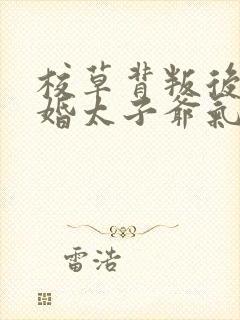 校草背叛後
婚太子爺氣
雷浩